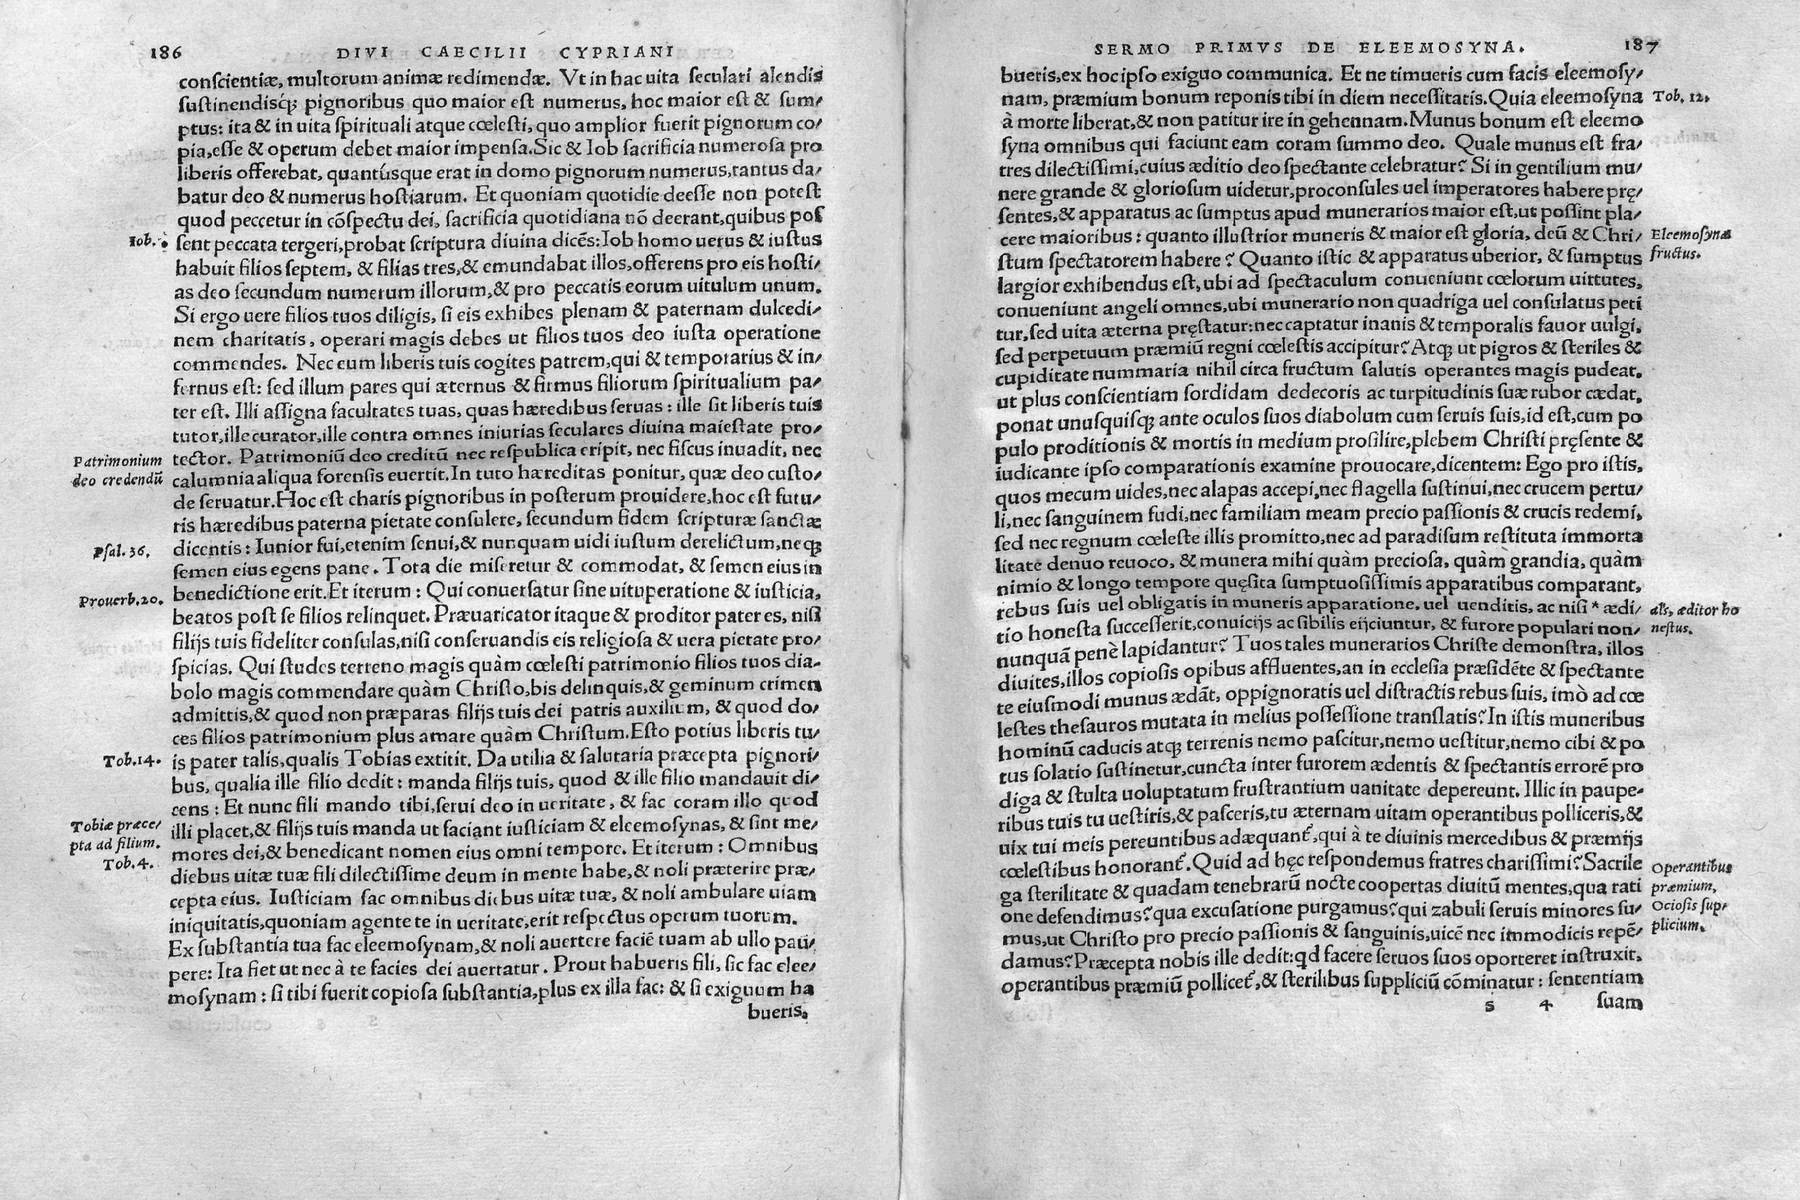 186 DIVI CAECILII CYPRIANI
conscientiæ, multorum animæ redimendæ. Vt in hac uita seculari alendis
sustinendisq́; pignoribus quo maior est numerus, hoc maior est & sum/
ptus: ita & in uita spirituali atque cœlesti, quo amplior fuerit pignorum co/
pia, esse & operum debet maior impensa. Sic & Iob sacrificia numerosa pro
liberis offerebat, quantúsque erat in domo pignorum numerus, tantus da/
batur deo & numerus hostiarum. Et quoniam quotidie deesse non potest
quod peccetur in cōspectu dei, sacrificia quotidiana nō deerant, quibus pos
Iob. 1.
sent peccata tergeri, probat scriptura diuina dicēs: Iob homo uerus & iustus
habuit filios septem, & filias tres, & emundabat illos, offerens pro eis hosti/
as deo secundum numerum illorum, & pro peccatis eorum uitulum unum.
Si ergo uere filios tuos diligis, si eis exhibes plenam & paternam dulcedi/
nem charitatis, operari magis debes ut filios tuos deo iusta operatione
commendes. Nec eum liberis tuis cogites patrem, qui & temporarius & in/
fernus est: sed illum pares qui æternus & firmus filiorum spiritualium pa/
ter est. Illi assigna facultates tuas, quas hæredibus seruas: ille sit liberis tuis
tutor, ille curator, ille contra omnes iniurias seculares diuina maiestate pro/
Patrimonium
deo credendū
tector. Patrimoniū deo creditū nec respublica eripit, nec fiscus inuadit, nec
calumnia aliqua forensis euertit. In tuto hæreditas ponitur, quæ deo custo/
de seruatur. Hoc est charis pignoribus in posterum prouidere, hoc est futu/
ris hæredibus paterna pietate consulere, secundum fidem scripturæ sanctæ
Psal. 36.
dicentis: Iunior fui, etenim senui, & nunquam uidi iustum derelictum, neq;
semen eius egens pane. Tota die miseretur & commodat, & semen eius in
Prouerb. 20.
benedictione erit. Et iterum: Qui conuersatur sine uituperatione & iusticia,
beatos post se filios relinquet. Præuaricator itaque & proditor pater es, nisi
filijs tuis fideliter consulas, nisi conseruandis eis religiosa & uera pietate pro/
spicias. Qui studes terreno magis quàm cœlesti patrimonio filios tuos dia-
bolo magis commendare quàm Christo, bis delinquis, & geminum crimen
admittis, & quod non præparas filijs tuis dei patris auxilium, & quod do/
ces filios patrimonium plus amare quàm Christum. Esto potius liberis tu/
Tob. 14.
is pater talis, qualis Tobias extitit. Da utilia & salutaria præcepta pignori/
bus, qualia ille filio dedit: manda filijs tuis, quod & ille filio mandauit di/
cens: Et nunc fili mando tibi, serui deo in ueritate, & fac coram illo quod
Tobiæ præce/
pta ad filium.
Tob. 4.
illi placet, & filijs tuis manda ut faciant iusticiam & eleemosynas, & sint me/
mores dei, & benedicant nomen eius omni tempore. Et iterum: Omnibus
diebus uitæ tuæ fili dilectissime deum in mente habe, & noli præterire præ/
cepta eius. Iusticiam fac omnibus diebus uitæ tuæ, & noli ambulare uiam
iniquitatis, quoniam agente te in ueritate, erit respectus operum tuorum.
Ex substantia tua fac eleemosynam, & noli auertere faciē tuam ab ullo pau/
pere: Ita fiet ut nec à te facies dei auertatur. Prout habueris fili, sic fac elee/
mosynam: si tibi fuerit copiosa substantia, plus ex illa fac: & si exiguum ha
bueris,
SERMO PRIMVS DE ELEEMOSYNA. 187
bueris, ex hoc ipso exiguo communica. Et ne timueris cum facis eleemosy/
nam, præmium bonum reponis tibi in diem necessitatis. Quia eleemosyna
Tob. 12.
à morte liberat, & non patitur ire in gehennam. Munus bonum est eleemo
syna omnibus qui faciunt eam coram summo deo. Quale munus est fra/
tres dilectissimi, cuius æditio deo spectante celebratur? Si in gentilium mu/
nere grande & gloriosum uidetur, proconsules uel imperatores habere prę/
sentes, & apparatus ac sumptus apud munerarios maior est, ut possint pla/
cere maioribus: quanto illustrior muneris & maior est gloria, deū & Chri/
Eleemosynæ
fructus.
stum spectatorem habere? Quanto istic & apparatus uberior, & sumptus
largior exhibendus est, ubi ad spectaculum conueniunt cœlorum uirtutes,
conueniunt angeli omnes, ubi munerario non quadriga uel consulatus peti
tur, sed uita æterna pręstatur: nec captatur inanis & temporalis fauor uulgi,
sed perpetuum præmiū regni cœlestis accipitur? Atq; ut pigros & steriles &
cupiditate nummaria nihil circa fructum salutis operantes magis pudeat,
ut plus conscientiam sordidam dedecoris ac turpitudinis suæ rubor cædat,
ponat unusquisq; ante oculos suos diabolum cum seruis suis, id est, cum po
pulo proditionis & mortis in medium prosilire, plebem Christi pręsente &
iudicante ipso comparationis examine prouocare, dicentem: Ego pro istis,
quos mecum uides, nec alapas accepi, nec flagella sustinui, nec crucem pertu/
li, nec sanguinem fudi, nec familiam meam precio passionis & crucis redemi,
sed nec regnum cœleste illis promitto, nec ad paradisum restituta immorta
litate denuo reuoco, & munera mihi quàm preciosa, quàm grandia, quàm
nimio & longo tempore quęsita sumptuosissimis apparatibus comparant,
rebus suis uel obligatis in muneris apparatione, uel uenditis, ac nisi * ædi/
als, æditor ho
nestus.
tio honesta successerit, conuicijs ac sibilis eijciuntur, & furore populari non/
nunquā penè lapidantur? Tuos tales munerarios Christe demonstra, illos
diuites, illos copiosis opibus affluentes, an in ecclesia præsidēte & spectante
te eiusmodi munus ædāt, oppignoratis uel distractis rebus suis, imò ad cœ
lestes thesauros mutata in melius possessione translatis? In istis muneribus
hominū caducis atq; terrenis nemo pascitur, nemo uestitur, nemo cibi & po
tus solatio sustinetur, cuncta inter furorem ædentis & spectantis errorē pro
diga & stulta uoluptatum frustrantium uanitate depereunt. Illic in paupe/
ribus tuis tu uestiris, & pasceris, tu æternam uitam operantibus polliceris, &
uix tui meis pereuntibus adæquant᷑, qui à te diuinis mercedibus & præmijs
cœlestibus honorant᷑. Quid ad hęc respondemus fratres charissimi? Sacrile
Operantibus
præmium,
Ociosis sup/
plicium.
ga sterilitate & quadam tenebrarū nocte coopertas diuitū mentes, qua rati
one defendimus? qua excusatione purgamus? qui zabuli seruis minores su/
mus, ut Christo pro precio passionis & sanguinis, uicē nec immodicis repē/
damus? Præcepta nobis ille dedit: qd facere seruos suos oporteret instruxit,
operantibus præmiū pollicet᷑, & sterilibus suppliciū cōminatur: sententiam
s 4 suam